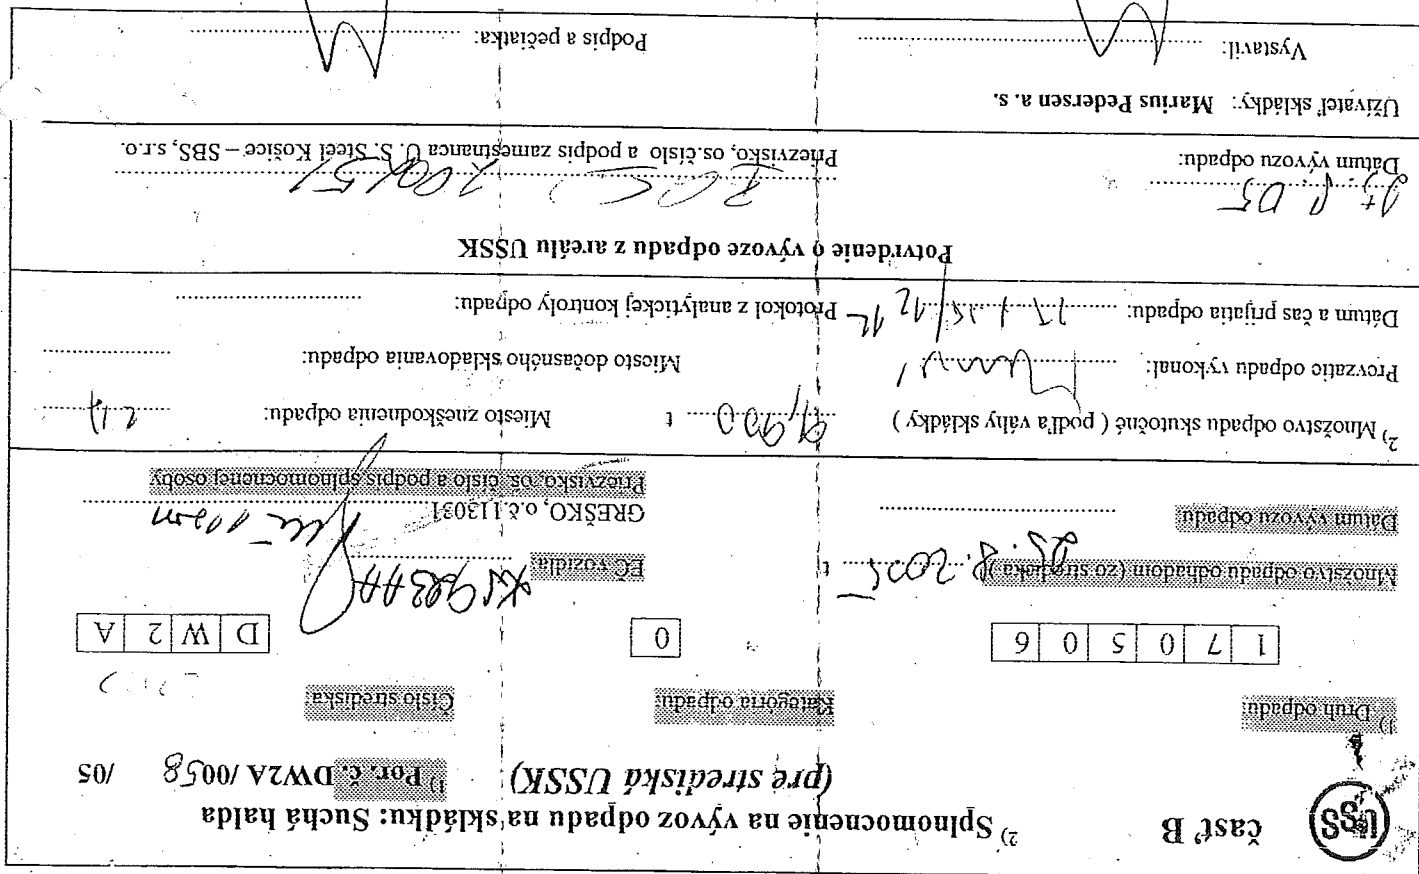 USS
časť B
²⁾ Splnomocnenie na vývoz odpadu na skládku: Suchá halda
(pre strediská USSK) ¹⁾ Por. č. DW2A /0058 /05
¹⁾ Druh odpadu: Kategória odpadu: Číslo strediska
1 7 0 5 0 6 0 D W 2 A
Množstvo odpadu odhadom (zo strediska) t EČ vozidla:
25. 8. 2005
Dátum vývozu odpadu
GREŠKO, o.č.113031
Priezvisko, os. číslo a podpis splnomocnenej osoby
²⁾ Množstvo odpadu skutočné ( podľa váhy skládky ) 9,900 t Miesto zneškodnenia odpadu:
Prevzatie odpadu vykonal: Miesto dočasného skladovania odpadu:
Dátum a čas prijatia odpadu: Protokol z analytickej kontroly odpadu:
Potvrdenie o vývoze odpadu z areálu USSK
Dátum vývozu odpadu: Priezvisko, os.číslo a podpis zamestnanca U. S. Steel Košice – SBS, s.r.o.
Užívateľ skládky: Marius Pedersen a. s.
Vystavil: Podpis a pečiatka: